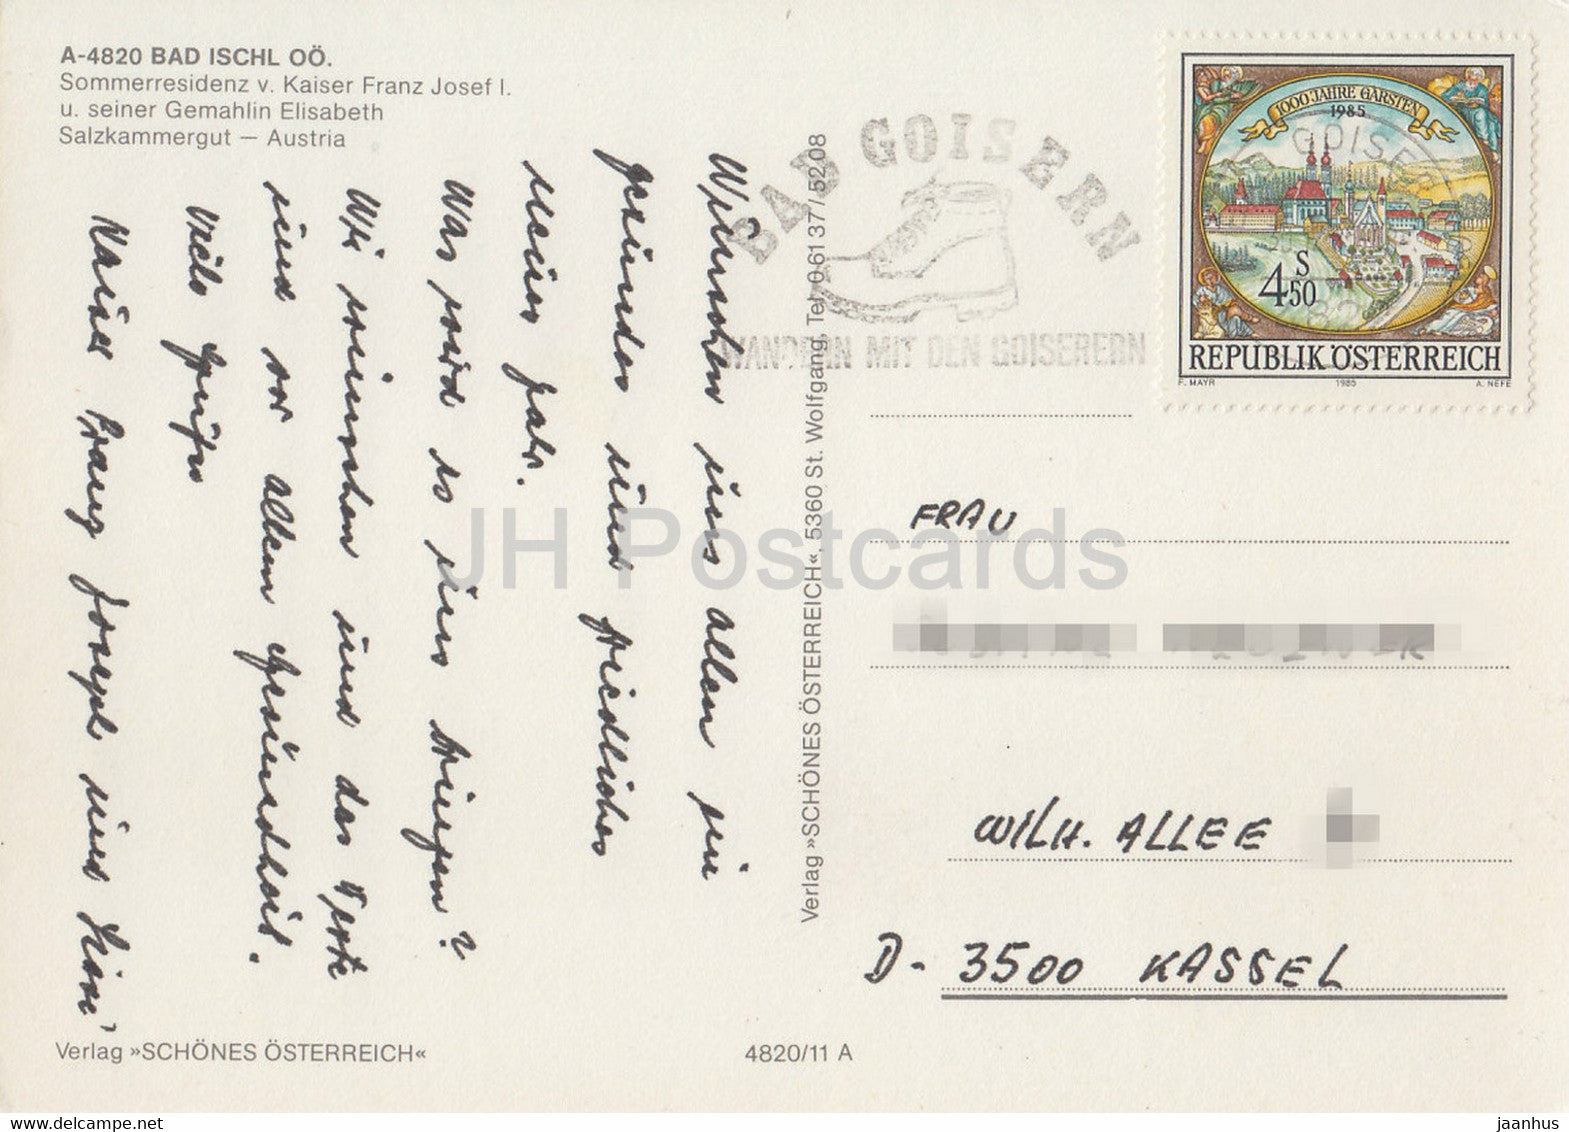 A-4820 BAD ISCHL OÖ.
Sommerresidenz v. Kaiser Franz Josef I.
u. seiner Gemahlin Elisabeth
Salzkammergut — Austria
Wünschen uns allen ein
gesundes und friedliches
Neues Jahr.
Was wird es uns bringen?
Wir wünschen uns das Beste
und vor allem Gesundheit.
Viele Grüße
Kaiser Franz Joseph und
Verlag »SCHÖNES ÖSTERREICH«
4820/11 A
Verlag »SCHÖNES ÖSTERREICH«, 5360 St. Wolfgang, Tel. 0 61 37/52 08
BAD GOISERN
WANDERN MIT DEN GOISERERN
1000 JAHRE GARSTEN
1985
S
4.50
REPUBLIK ÖSTERREICH
F. MAYR 1985 A. NEFE
FRAU
WILH. ALLEE
D- 3500 KASSEL
JH Postcards
www.delcampe.net
jaanhus